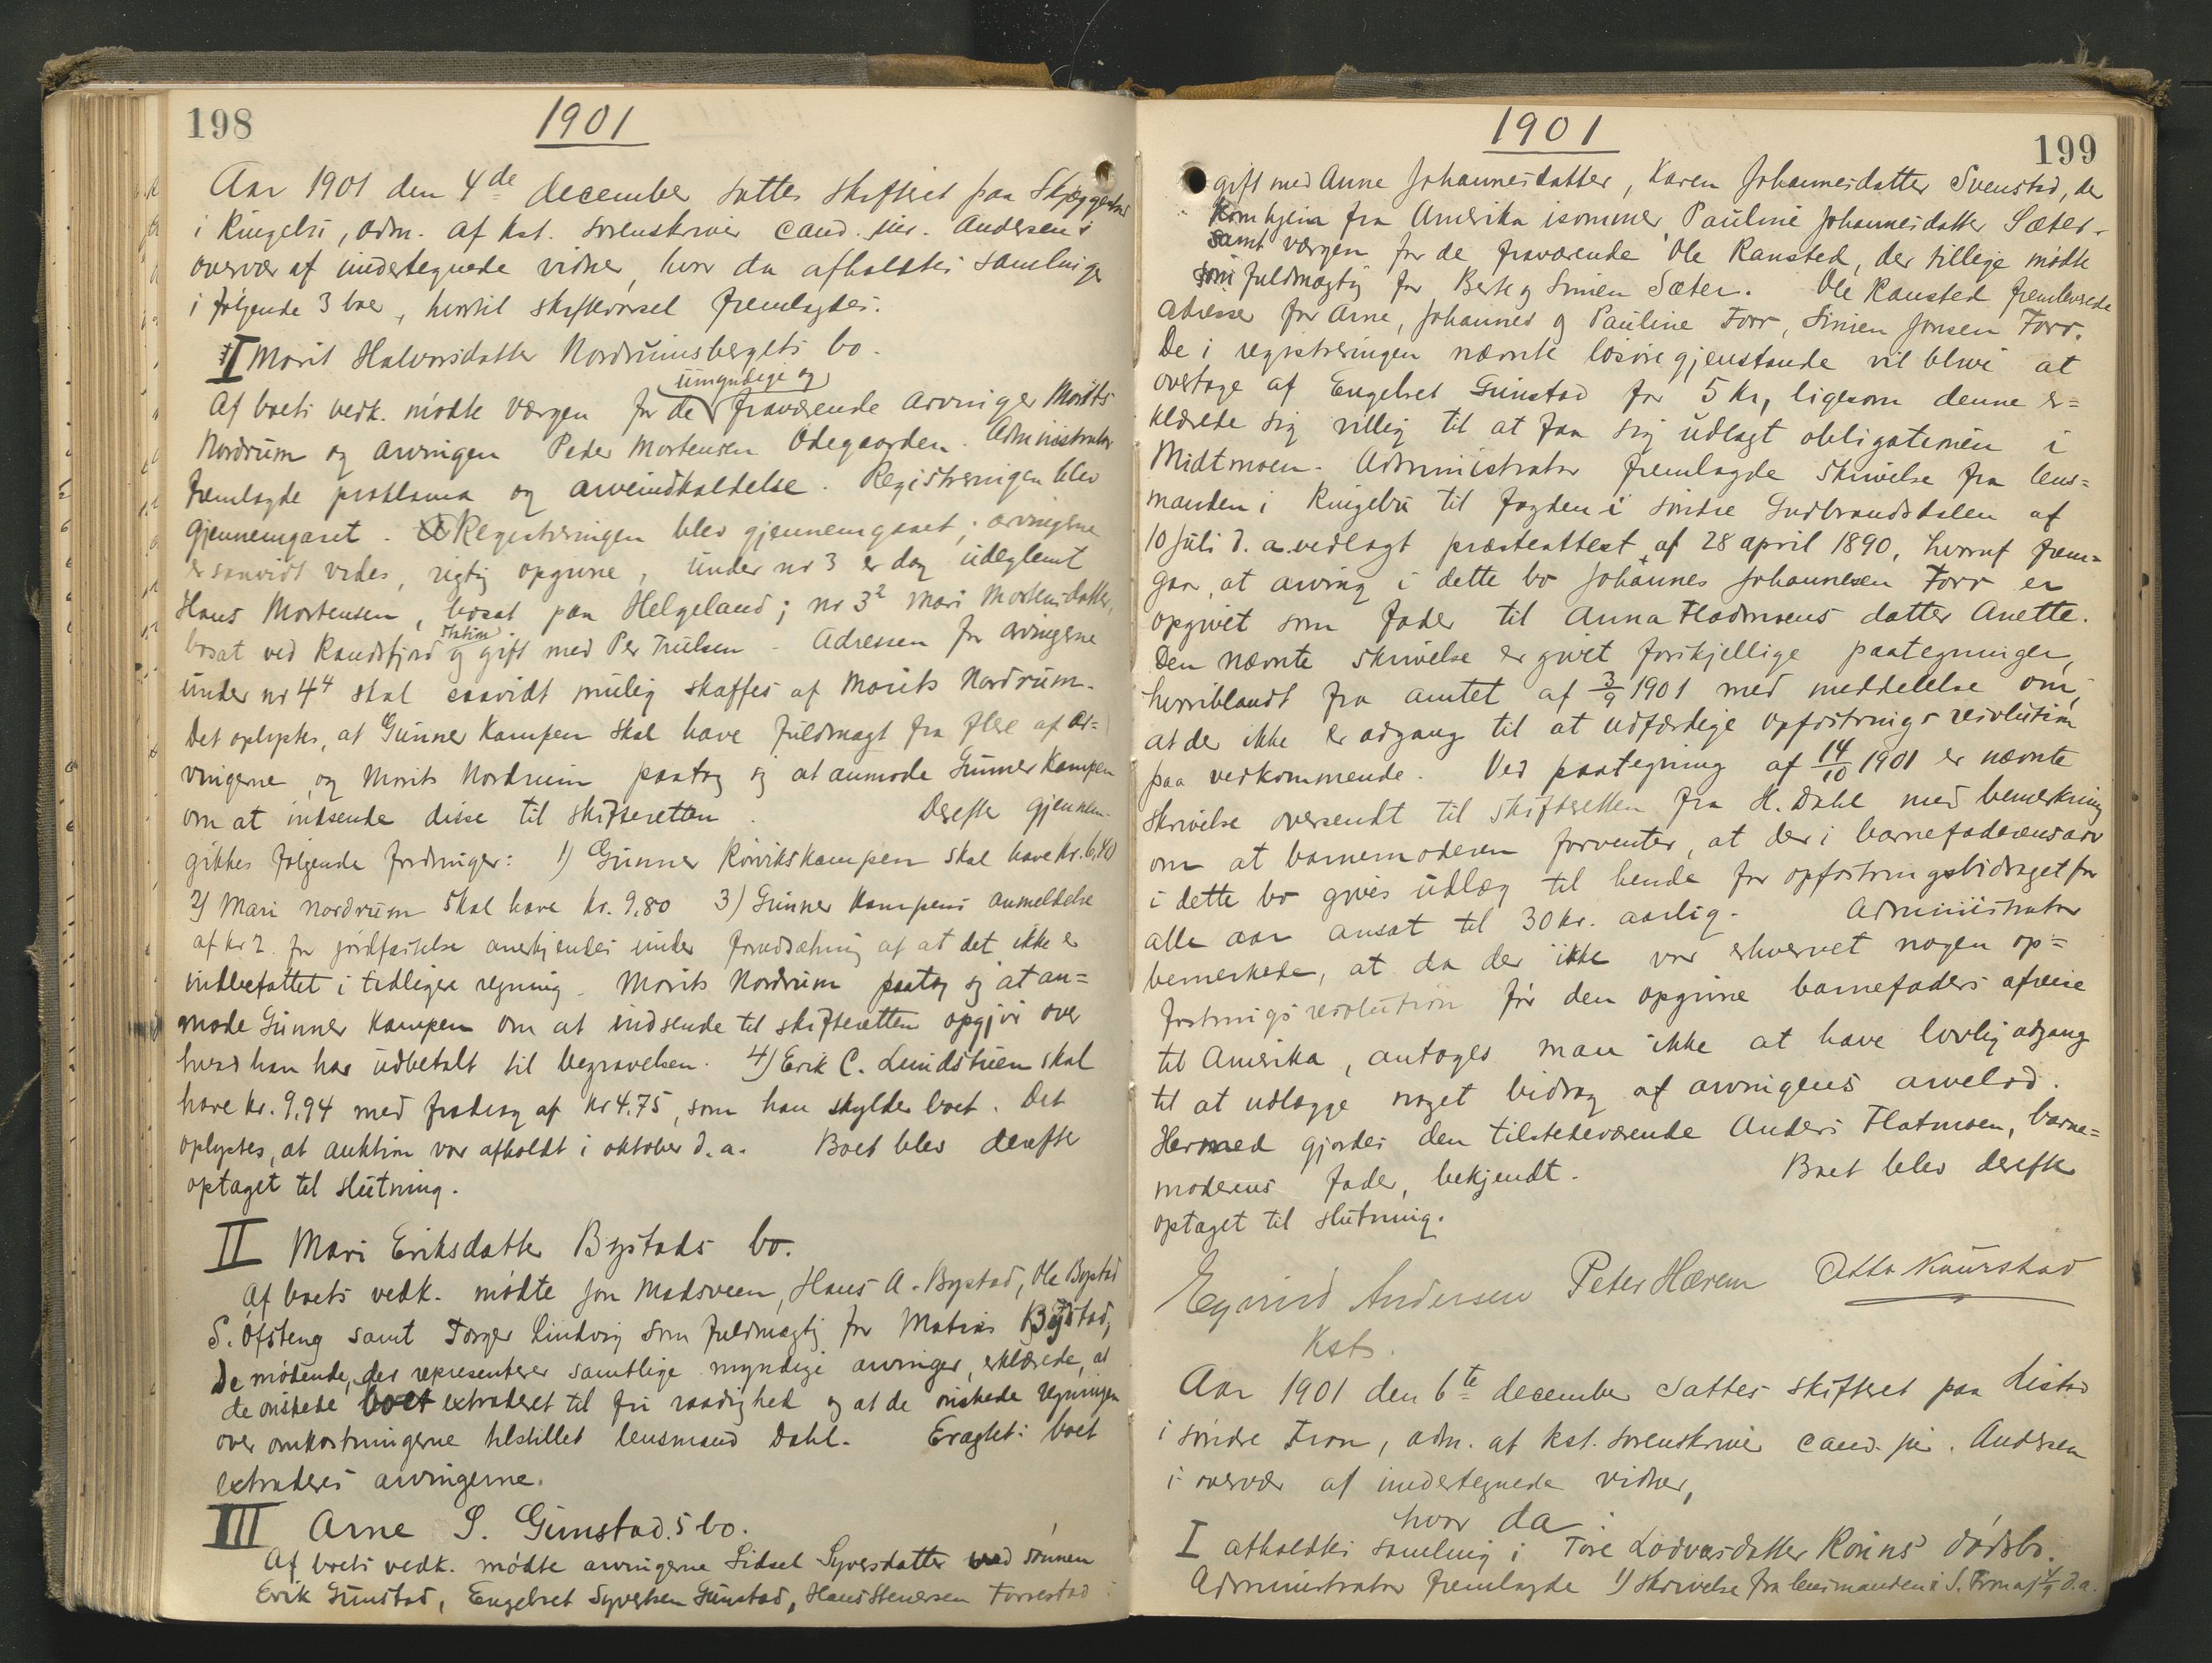 198
1901
Aar 1901 den 4de december sattes skifteret paa Skjeggestad
i Ringebu, adm. af kst. sorenskriver cand. jur. Andersen i
overvær af undertegnede vidner, hvor da afholdtes samlinger
i følgende 3 boer, hvortil skiftevarsel fremlagdes.
I Marit Halvorsdatter Nordrumsbergets bo.
umyndige og
Af boets vedk. mødte værgen for de fraværende arvinger Morits
Nordrum og arvingen Peder Mortensen Ødegaarden. Administrator
fremlagde proklama og arveindkaldelse. Registreringen blev
gjennemgaaet. Registreringen blev gjennemgaaet; arvingerne
er saavidt vides, rigtig opgivne, under nr 3 er dog udeglemt
Hans Mortensen, bosat paa Helgeland; nr 3² Mari Mortensdatter,
bosat ved Randsfjord station og gift med Per Trulsen. Adressen for arvingerne
under nr 4⁴ skal saavidt mulig skaffes af Morits Nordrum.
Det oplystes, at Gunner Kampen skal have fuldmagt fra flere af ar=
vingerne, og Morits Nordrum paatog sig at anmode Gunner Kampen
om at indsende disse til skifteretten. Derefter gjennem-
gikkes følgende fordringer: 1) Gunner Rørvikskampen skal have kr. 6,40
2) Mari Nordrum skal have kr. 9,80 3) Gunner Kampens anmeldelse
af kr 2. for jordfæstelse anerkjendes under forudsætning af at det ikke er
indbefattet i tidligere regning. Morits Nordrum paatog sig at an=
mode Gunner Kampen om at indsende til skifteretten opgjør over
hvad han har udbetalt til begravelsen. 4) Erik C. Lundstuen skal
have kr. 9,94 med fradrag af kr 4.75, som han skylder boet. Det
oplystes, at auktion var afholdt i oktober d. a. Boet blev derefter
optaget til slutning.
II Mari Eriksdatter Bystads bo.
Af boets vedk. mødte Jon Madsveen, Hans A. Bystad, Ole Bystad
S. Ofsteng samt Torger Lindvig som fuldmægtig for Matias Bystad,
De mødende, der representerer samtlige myndige arvinger, erklærede, at
de ønskede boet extraderet til fri raadighed og at de ønskede regningen
over omkostningerne tilstillet lensmand Dahl. Eragtet: boet
extraderes arvingerne.
III Arne S. Gunstad.s bo.
Af boets vedk. mødte arvingerne Sidsel Syversdatter ved sønnen
Erik Gunstad, Engebret Syversen Gunstad, Hans Stenersen Forrestad
1901
199
gift med Anne Johannesdatter, Karen Johannesdatter Svenstad, der
kom hjem fra Amerika isommer, Pauline Johannesdatter Sæter-
samt værgen for de fraværende Ole Ransted, der tillige mødte
som fuldmægtig for Berte og Simen Sæter. Ole Ransted fremleverede
adresser for Arne, Johannes og Pauline Forr, Simen Jonsen Forr.
De i registreringen nævnte løsøregjenstande vil blive at
overtage af Engebret Gunstad for 5 kr, ligesom denne er=
klærede sig villig til at faa sig udlagt obligationen i
Midtmoen. Administrator fremlagde skrivelse fra lens=
manden i Ringebu til fogden i søndre Gudbrandsdalen af
10 juli d. a. vedlagt præsteattest af 28 april 1890, hvoraf frem=
gaar, at arving i dette bo Johannes Johannesen Forr er
opgivet som fader til Anna Fladmoens datter Anette.
Den nævnte skrivelse er givet forskjellige paategninger,
hvoriblandt fra amtet af 3/9 1901 med meddelelse om,
at der ikke er adgang til at udfærdige opfostringsresolution
paa vedkommende. Ved paategning af 14/10 1901 er nævnte
skrivelse oversendt til skifteretten fra H. Dahl med bemerkning
om at barnemoderen forventer, at der i barnefaderens arv
i dette bo gives udlæg til hende for opfostringsbidraget for
alle aar ansat til 30 kr. aarlig. Administrator
bemerkede, at da der ikke var erhvervet nogen op=
fostringsresolution før den opgivne barnefaders afreise
til Amerika, antages man ikke at have lovlig adgang
til at udlægge noget bidrag af arvingens arvelod.
Hermed gjordes den tilstedeværende Anders Flatmoen, barne=
moderens fader, bekjendt. Boet blev derefter
optaget til slutning.
Eyvind Andersen Peter Hærem Otto Kaurstad
Kst.
Aar 1901 den 6te december sattes skifteret paa Listad
i søndre Fron, adm. af kst. sorenskriver cand. jur. Andersen
i overvær af undertegnede vidner,
hvor da:
I afholdtes samling i Tore Lodvarsdatter Rønns dødsbo.
Administrator fremlagde 1) skrivelse fra lensmanden i S. Fron af d. a.